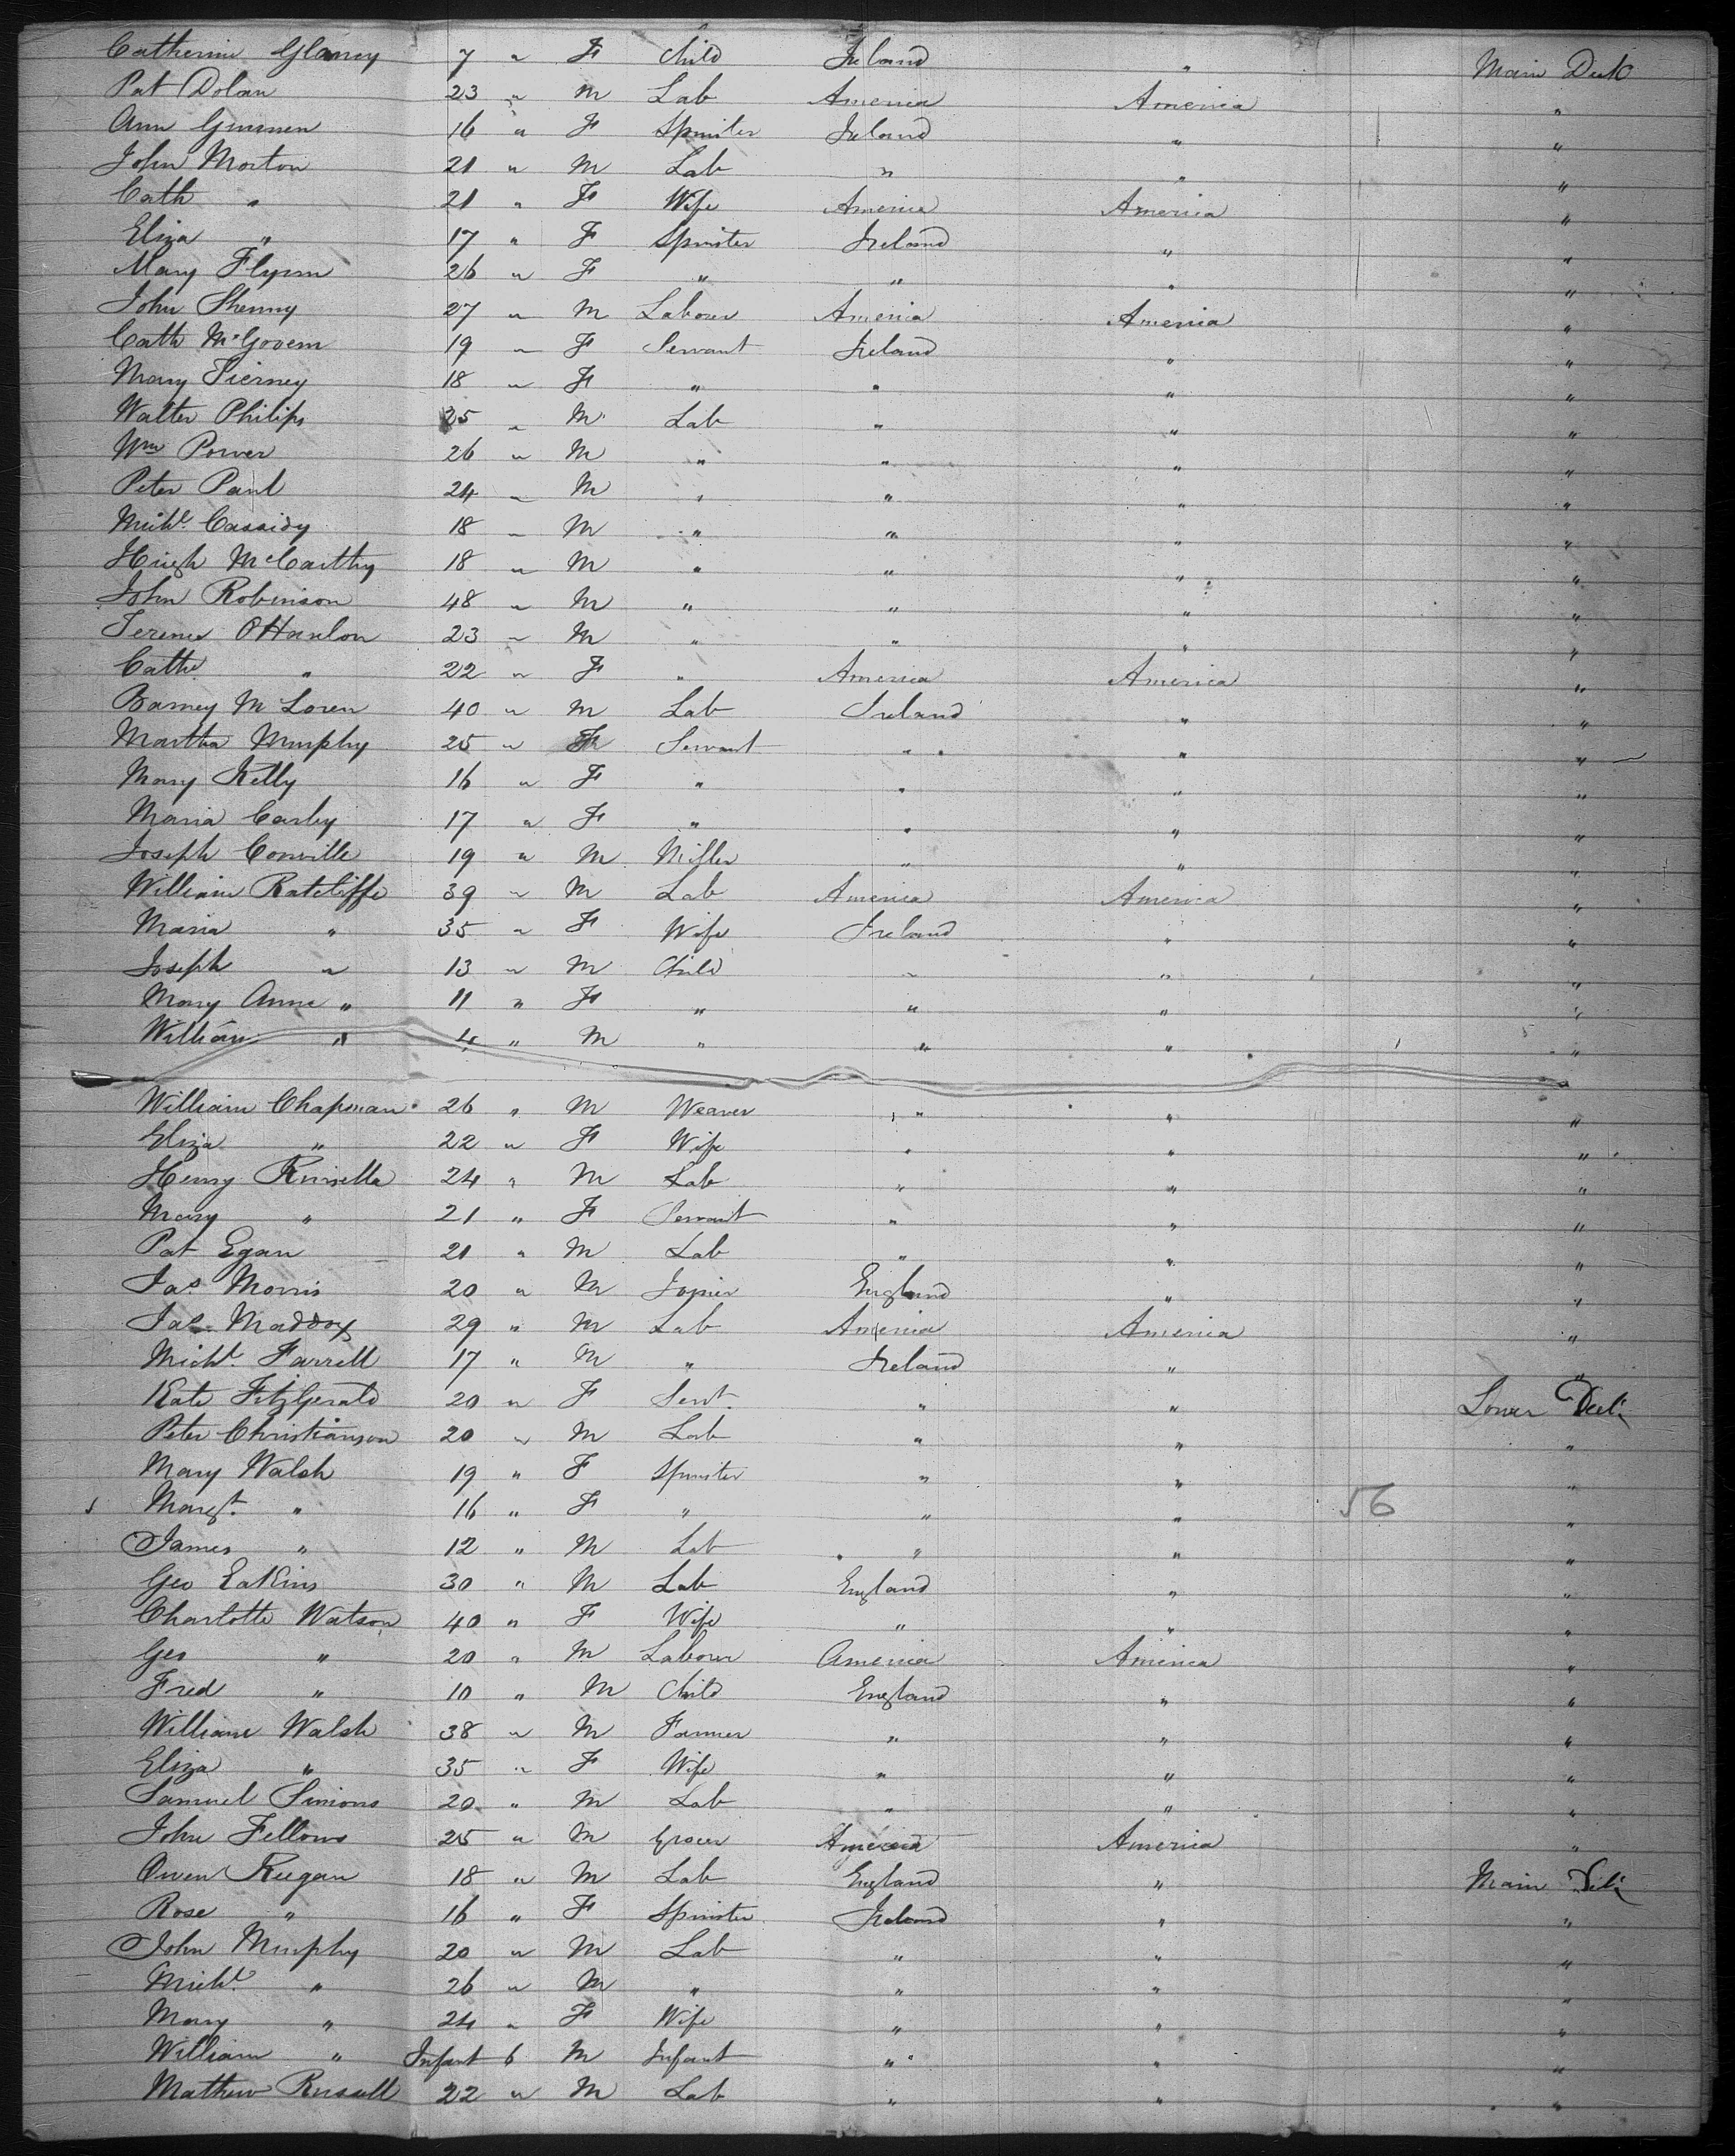 Catherine Glancy 7 " F Child Ireland " Main Deck
Pat Dolan 23 " M Lab America America "
Ann 16 " F Spinster Ireland " "
John Morton 21 " M Lab " " "
Cath " 21 " F Wife America America "
Eliza " 17 " F Spinster Ireland " "
Mary Flynn 26 " F " " " "
John 27 " M Labour America America "
Cath McGovern 19 " F Servant Ireland " "
Mary Tierney 18 " F " " " "
Walter Philips 25 " M Lab " " "
Wm Power 26 " M " " " "
Peter Paul 24 " M " " " "
Michl. Cassidy 18 " M " " " "
Hugh McCarthy 18 " M " " " "
John Robinson 48 " M " " " "
Terence O'Hanlon 23 " M " " " "
Cathe " 22 " F " America America "
Barney McLoren 40 " M Lab Ireland " "
Martha Murphy 25 " F Servant " " "
Mary Kelly 16 " F " " " "
Maria Carley 17 " F " " " "
Joseph Conville 19 " M Miller " " "
William Ratcliffe 39 " M Lab America America "
Maria " 35 " F Wife Ireland " "
Joseph " 13 " M Child " " "
Mary Anne " 11 " F " " " "
William " 4 " M " " " "
William Chapman 26 " M Weaver " " "
Eliza " 22 " F Wife " " "
Henry Kinsella 24 " M Lab " " "
Mary " 21 " F Servant " " "
Pat Egan 21 " M Lab " " "
Jas. Morris 20 " M Joiner England " "
Jas. Maddox 29 " M Lab America America "
Michl. Farrell 17 " M " Ireland " "
Kate FitzGerald 20 " F Servt. " " Lower Deck
Peter Christianson 20 " M Lab " " "
Mary Walsh 19 " F Spinster " " "
Margt. " 16 " F " " " 56 "
James " 12 " M Lab " " "
Geo Eakins 30 " M Lab England " "
Charlotte Watson 40 " F Wife " " "
Geo " 20 " M Labour America America "
Fred " 10 " M Child England " "
William Walsh 38 " M Farmer " " "
Eliza " 35 " F Wife " " "
Samuel Simons 20 " M Lab " " "
John Fellows 25 " M Grocer America America "
Owen Keegan 18 " M Lab England " Main Deck
Rose " 16 " F Spinster Ireland " "
John Murphy 20 " M Lab " " "
Michl. " 26 " M " " " "
Mary " 24 " F Wife " " "
William " Infant 6 M Infant " " "
Mathew Russell 22 " M Lab " " "